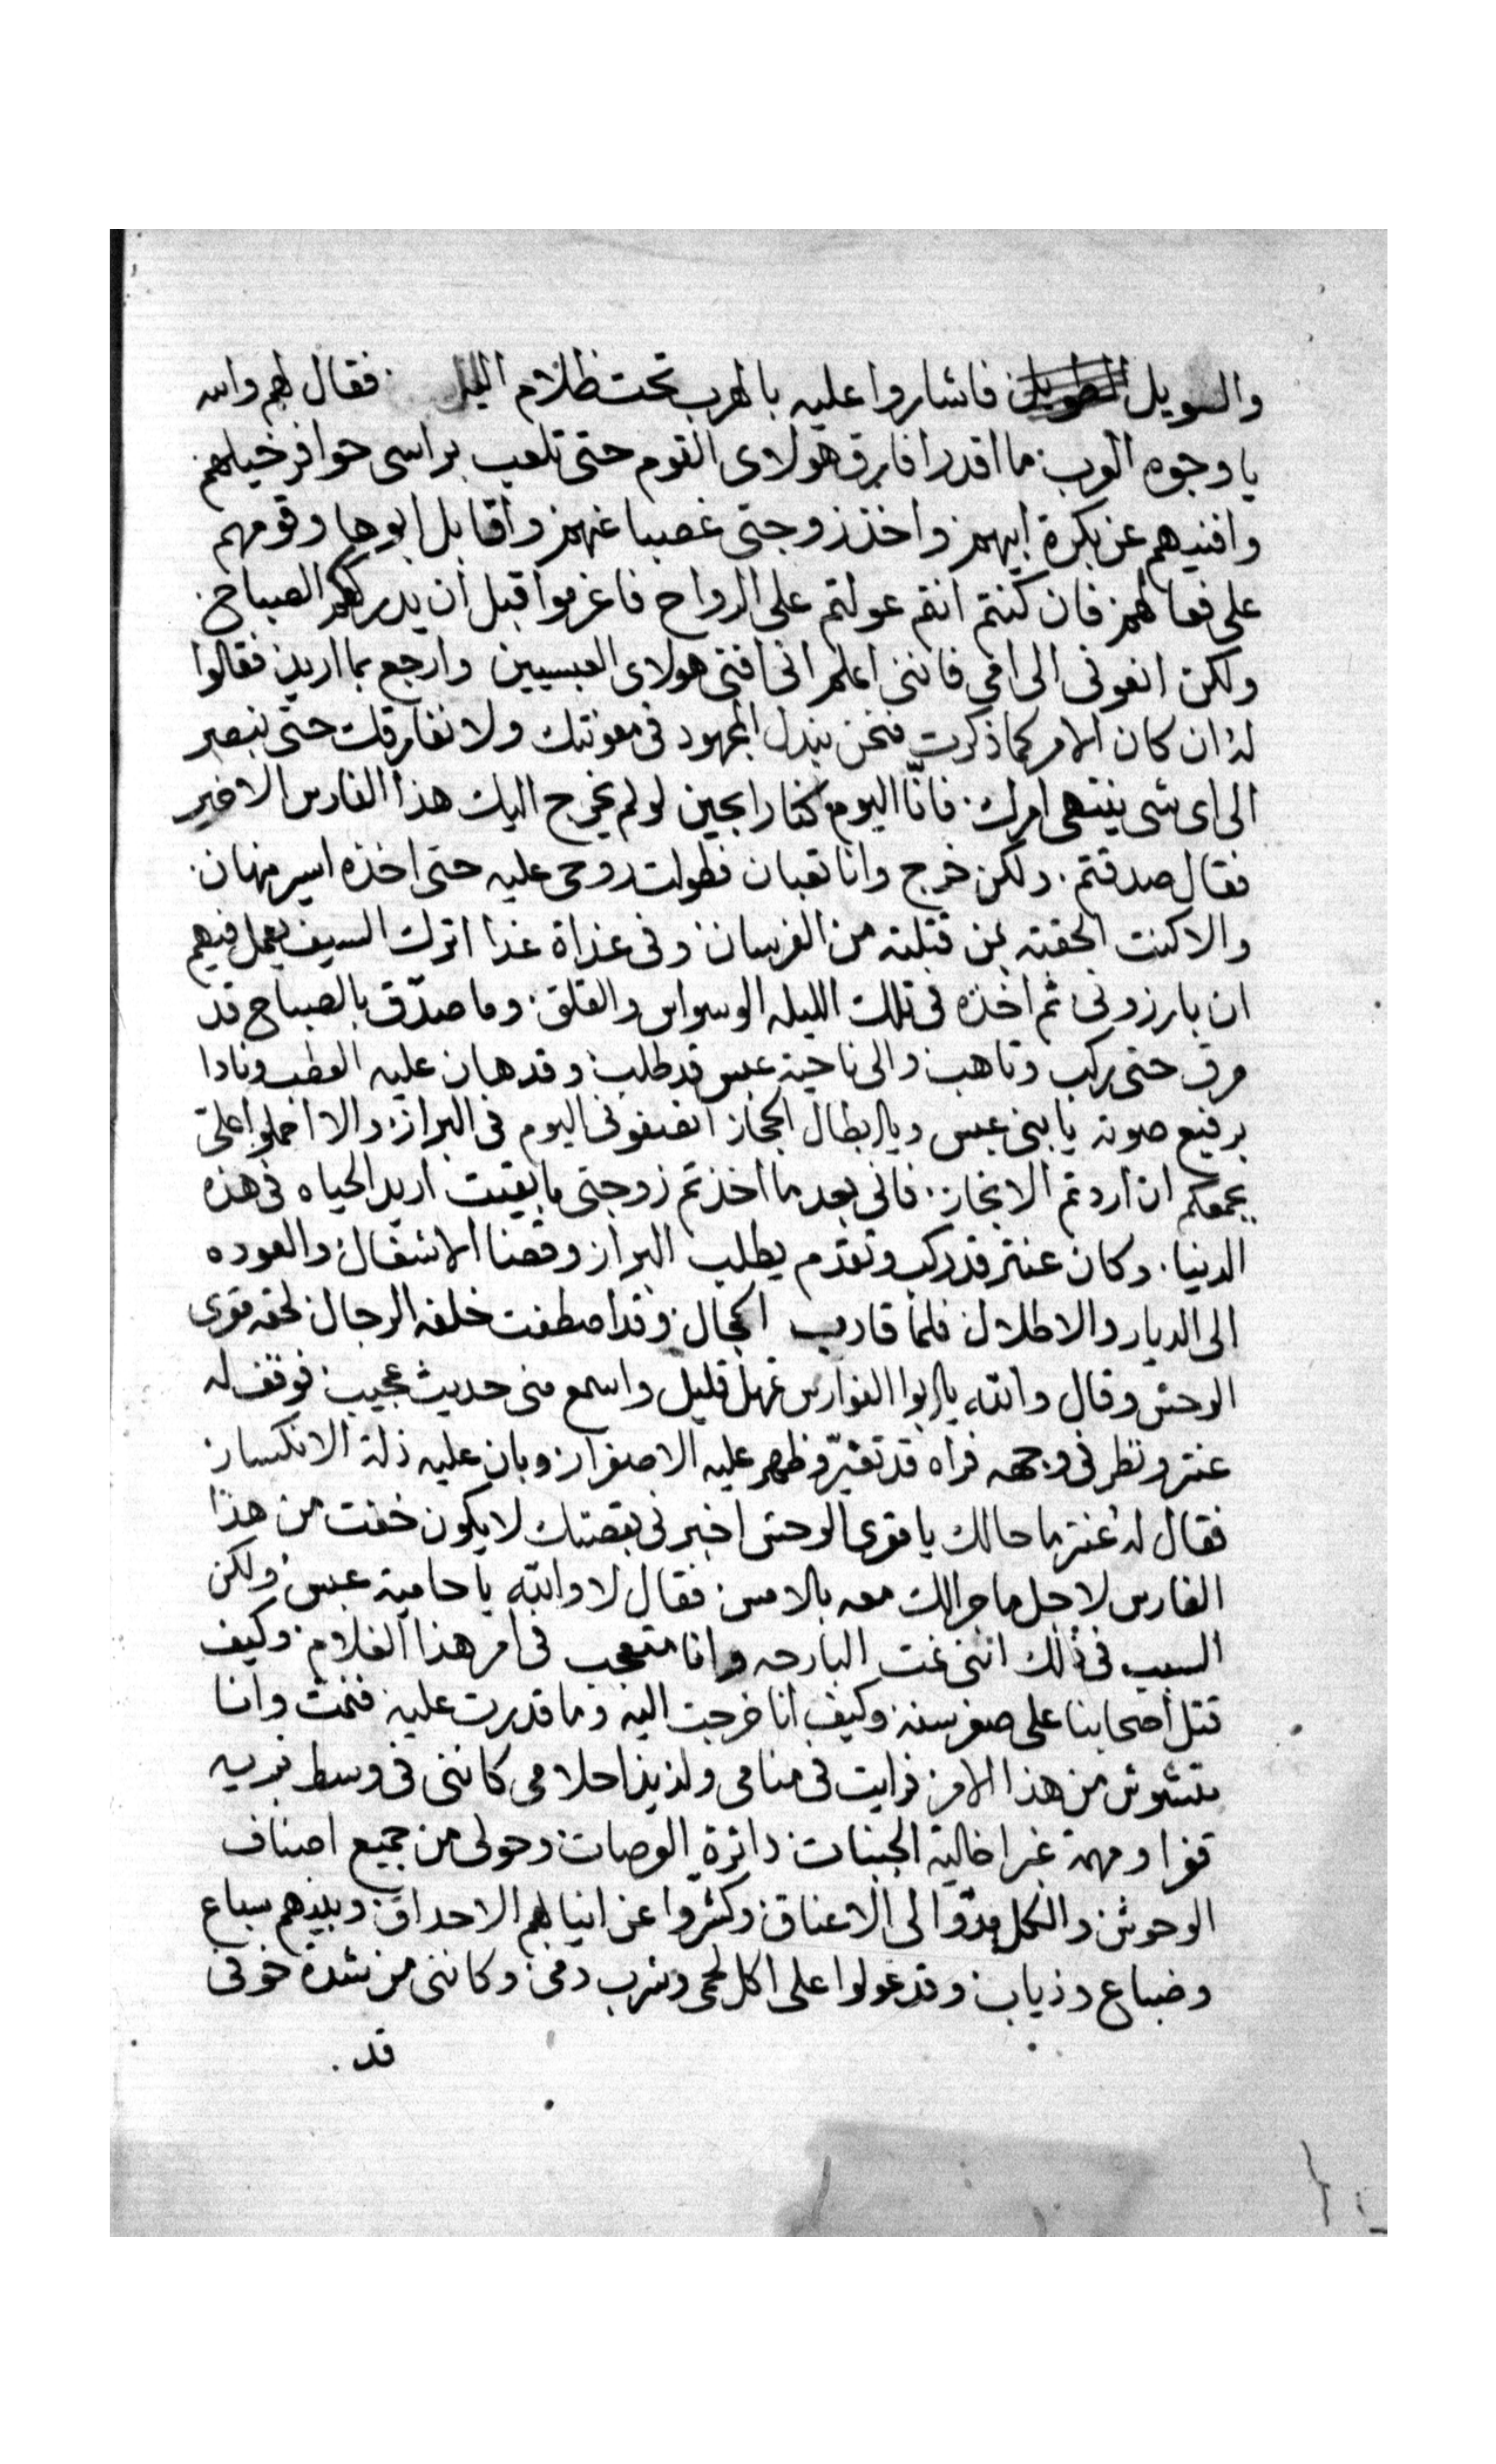 والسويل الطويل فاشاروا عليه بالهرب تحت ظلام الليل . فقال لهم والله
يا وجوه العرب ما اقدر افارق هولاى القوم حتى تلعب براسى حوافر خيلهم
وافنيهم عن بكرة ابيهم واخذ زوجتى غصبا عنهم واقابل ابوها وقومهم
على فعالهم فان كنتم انتم عولتم على الرواح فاعزموا قبل ان يدرككم الصباح
ولكن انعونى الى امى فاننى اعلم انى افنى هولاى العبسيين وارجع بما اريد فقالوا
له ان كان الامر كما ذكرت فنحن نبدل المجهود فى معونتك ولا نفارقك حتى نبصر
الى اى شى ينتهى امرك فانّا اليوم كنا رابحين لو لم يخرج اليك هذا الفارس الاخير
فقال صدقتم . ولكن خرج وانا تعبان فطولت روحى عليه حتى اخذه اسير مهان
والا كنت الحقته بمن قتلته من الفرسان وفى غداة غدا اترك السيف يعمل فيهم
ان بارزونى ثم اخذه فى تلك الليله الوسواس والقلق وما صدّق بالصباح قد
مرق حتى ركب وتاهب والى ناحية عبس قد طلب وقد هان عليه العطب ونادا
برفيع صوته يا بنى عبس ويا ابطال الحجاز انصفونى اليوم فى البراز والا احملوا علىّ
بجمعكم ان اردتم الانجاز فانى بعد ما اخذتم زوجتى ما بقيت اريد الحياه فى هذه
الدنيا . وكان عنتر قد ركب وتقدم يطلب البراز وقضا الاشغال والعوده
الى الديار والاطلال فلما قارب المجال وقد اصطفت خلفه الرجال لحقه مقرى
الوحش وقال والله يا ابوا الفوارس تمهل قليل واسمع منى حديث عجيب فوقف له
عنتر ونظر فى وجهه فراه قد تغيّر وظهر عليه الاصفرار وبان عليه ذلة الانكسار
فقال له عنتر ما حالك يا مقرى الوحش اخبرنى بقصتك لا يكون خفت من هذا
الفارس لاجل ما جرا لك معه بالامس فقال لا والله يا حامية عبس ولكن
السبب فى ذلك اننى نمت البارحه وانا متعجب فى امر هذا الغلام وكيف
قتل اصحابنا على صغر سنه وكيف انا خرجت اليه وما قدرت عليه فنمت وانا
متشوش من هذا الامر فرايت فى منامى ولذيذ احلامى كاننى فى وسط بريه
قفرا ومهمة غبرا خالية الجنبات دائرة الوصات وحولى من جميع اصناف
الوحوش والكل مدّوا الى الاعناق وكشروا عن انيابهم الاحداق وبينهم سباع
وضباع وذياب وقد عولوا على اكل لحمى وشرب دمى وكاننى من شدة خوفى
قد .